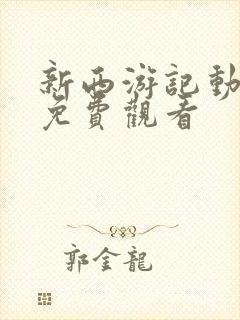 新西游記動
免費觀看
郭金龍